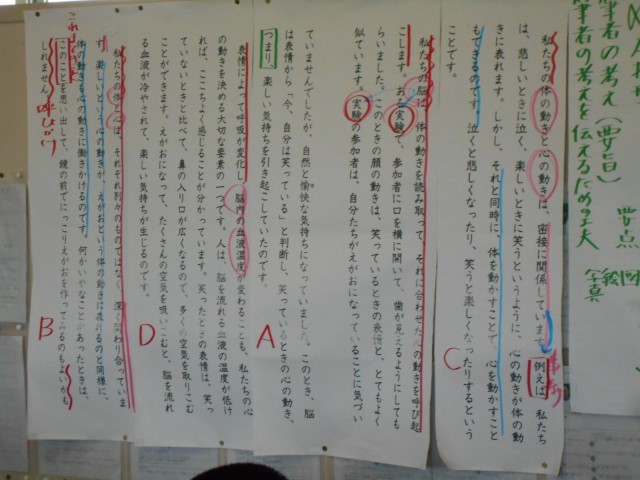 筆者の考え(要旨)
筆者の考えを伝えるための工夫
要点
写真
私たちの体の動きと心の動きは、密接に関係しています。例えば、私たち
は、悲しいときに泣く、楽しいときに笑うというように、心の動きが体の動
きに表れます。しかし、それと同時に、体を動かすことで、心を動かすこと
もできるのです。泣くと悲しくなったり、笑うと楽しくなったりするという
ことです。
C
私たちの脳は、体の動きを読み取って、それに合わせた心の動きを呼び起
こします。ある実験で、参加者に口を横に開いて、歯が見えるようにしても
らいました。このときの顔の動きは、笑っているときの表情と、とてもよく
似ています。実験の参加者は、自分たちがえがおになっていることに気づい
ていませんでしたが、自然と愉快な気持ちになっていました。このとき、脳
は表情から「今、自分は笑っている」と判断し、笑っているときの心の動き、
つまり、楽しい気持ちを引き起こしていたのです。
A
表情によって呼吸が変化し、脳内の血液温度が変わることも、私たちの心
の動きを決める大切な要素の一つです。人は、脳を流れる血液の温度が低け
れば、ここちよく感じることが分かっています。笑ったときの表情は、笑っ
ていないときと比べて、鼻の入り口が広くなるので、多くの空気を取りこむ
ことができます。えがおになって、たくさんの空気を吸いこむと、脳を流れ
る血液が冷やされて、楽しい気持ちが生じるのです。
D
私たちの体と心は、それぞれ別々のものではなく、深く関わり合っていま
す。楽しいという心の動きが、えがおという体の動きに表れるのと同様に、
体の動きも心の動きに働きかけるのです。何かいやなことがあったときは、
このことを思い出して、鏡の前でにっこりえがおを作ってみるのもよいかも
しれません。
呼びかけ
B